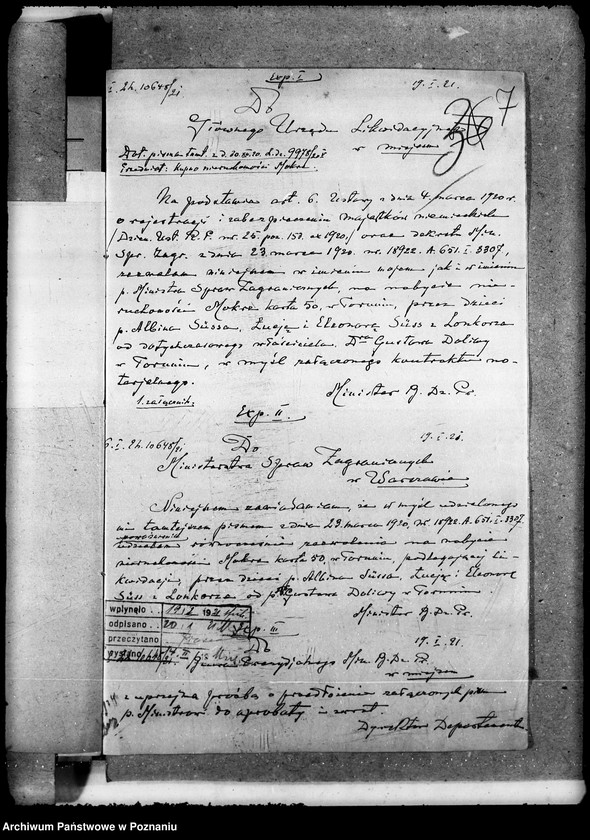 Exp. I
I. 2h. 10648/21 19. I. 21.
7
Do
Głównego Urzędu Likwidacyjnego
w miejscu
Dot. pisma tamt. z d. 20. XII. 20. L. dz. 9978/20
Przedmiot: kupno nieruchomości Mokre.
Na podstawie art. 6. Ustawy z dnia 4. marca 1920 r.
o rejestracji i zabezpieczeniu majątków niemieckich
/Dzien. Ust. R. P. nr. 25. poz. 153. ex 1920,/ oraz dekretu Min.
Spr. Zagr. z dnia 23. marca 1920. nr. 18922. A. 651. I. 3307,
zezwalam niniejszem w imieniu mojem jak i w imieniu
p. Ministra Spraw Zagranicznych, na nabycie nie-
ruchomości Mokre karta 50, w Toruniu, przez dzieci
p. Albina Süssa, Łucję i Eleonorę Süss z Lonkorza
od dotychczasowego właściciela Dra Gustawa Doliwy
w Toruniu, w myśl załączonego kontraktu no-
tarjalnego.
1. załącznik. Minister b. Dz. Pr.
Exp. II.
I. 2h. 10648/21 19. I. 21.
Do
Ministerstwa Spraw Zagranicznych
w Warszawie
Niniejszem zawiadamiam, że w myśl udzielonego
mi tamtejszem pismem z dnia 23. marca 1920, nr. 18922. A. 651. I. 3307
udzielam zezwolenia na nabycie
nieruchomości Mokre karta 50 w Toruniu, podlegającej li-
kwidacji, przez dzieci p. Albina Süssa, Łucję i Eleonorę
Süss z Lonkorza od p. Gustawa Doliwy w Toruniu.
Minister b. Dz. Pr.
wpłynęło . . 19 I 1921
odpisano . . 20. I
przeczytano
wysłano
Exp. III
19. I. 21.
Do
Biura Prezydjalnego Min. b. Dz. Pr.
w miejscu
z uprzejmą prośbą o przedłożenie załączonych pism
p. Ministrowi do aprobaty i zwrot.
Dyrektor Departamentu
Archiwum Państwowe w Poznaniu